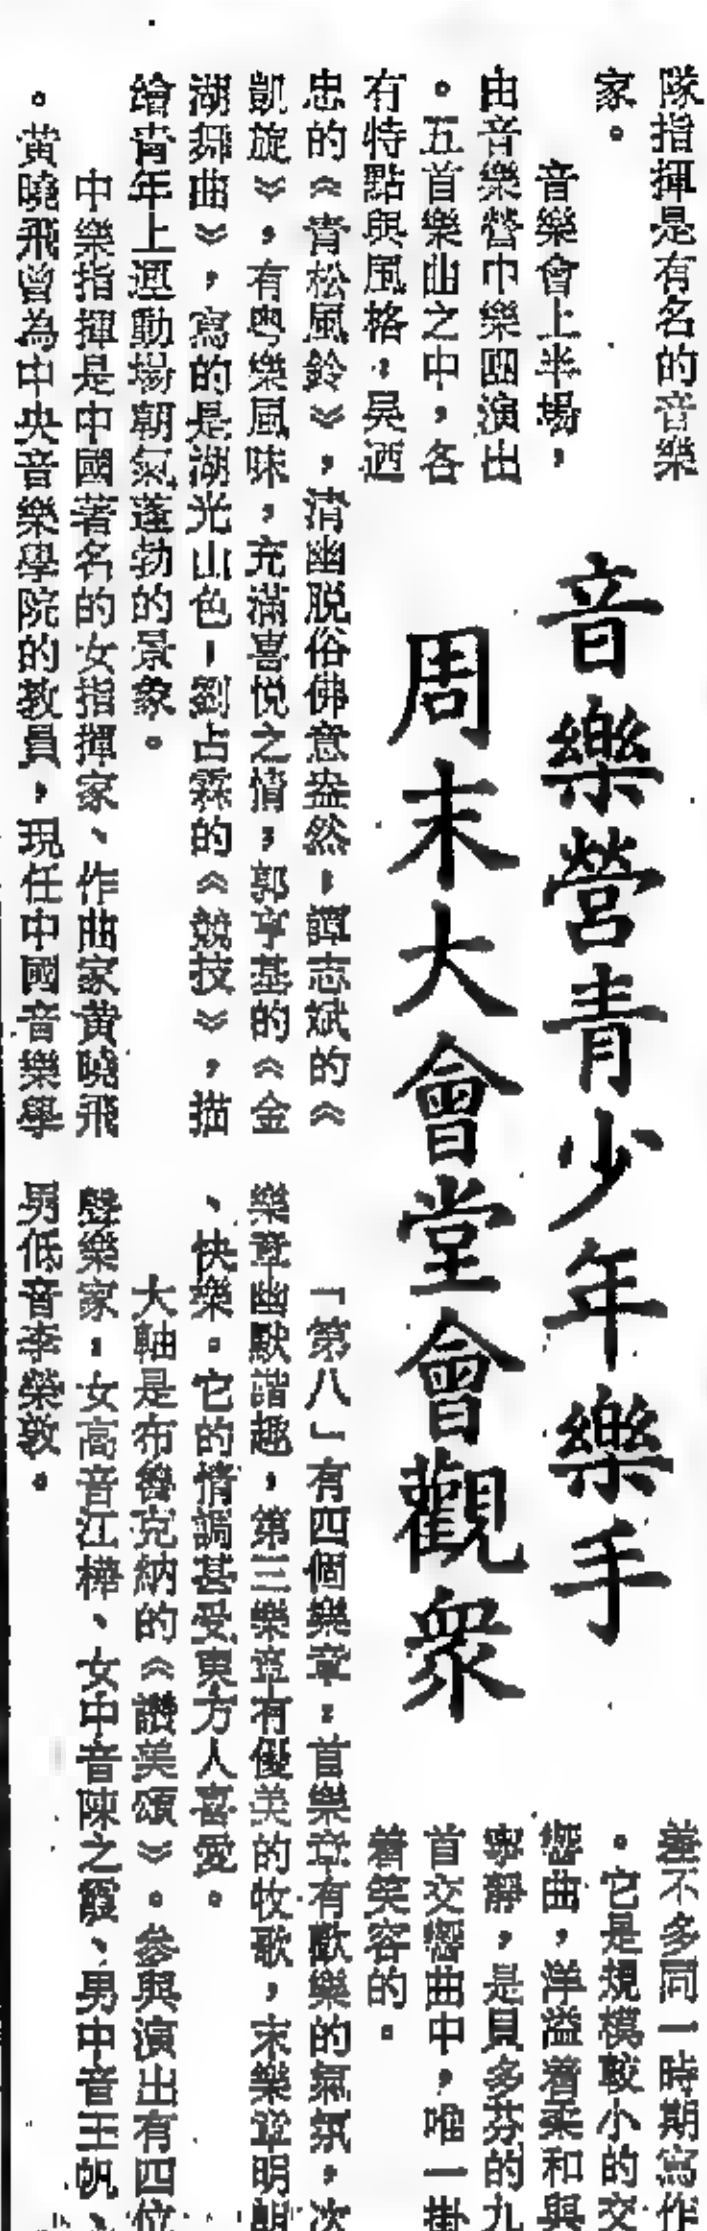 音樂營青少年樂手
周末大會堂會觀眾
隊指揮是有名的音樂
家。
音樂會上半場，
由音樂營中樂團演出
。五首樂曲之中，各
有特點與風格，吳迺
忠的《青松風鈴》，清幽脱俗佛意盎然，譚志斌的《
凱旋》，有粵樂風味，充滿喜悦之情，郭亨基的《金
湖舞曲》，寫的是湖光山色，劉占霖的《競技》，描
繪青年上運動場朝氣蓬勃的景象。
中樂指揮是中國著名的女指揮家、作曲家黄曉飛
。黄曉飛曾為中央音樂學院的教員，現任中國音樂學
差不多同一時期寫作
。它是規模較小的交
響曲，洋溢着柔和與
寧靜，是貝多芬的九
首交響曲中，唯一掛
着笑容的。
「第八」有四個樂章，首樂章有歡樂的氣氛，次
樂章幽默諧趣，第三樂章有優美的牧歌，末樂章明朗
、快樂。它的情調甚受東方人喜愛。
大軸是布魯克納的《讚美頌》。參與演出有四位
聲樂家，女高音江樺、女中音陳之霞、男中音王帆、
男低音李榮敦。